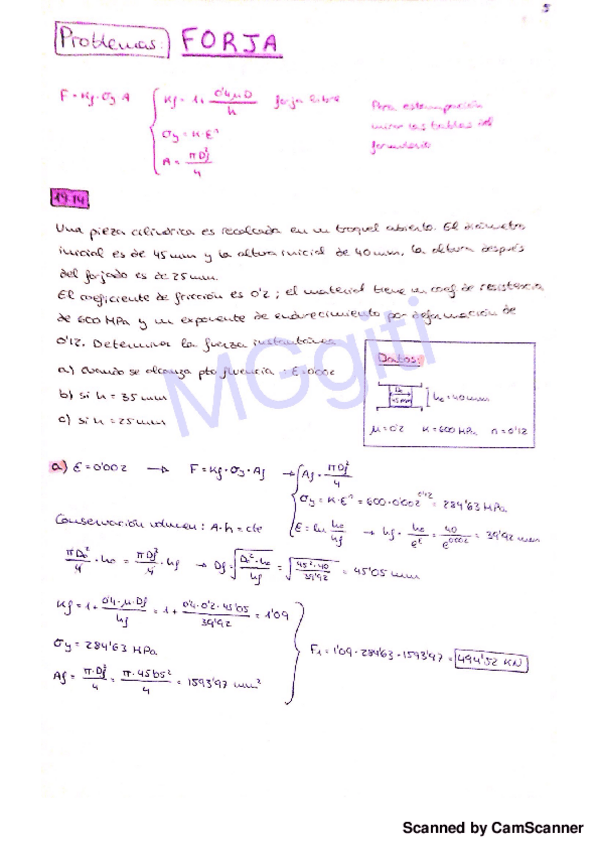 Problemas: FORJA
F = Kf · σy · A
Kf = 1 + 0'4 μ D / h forja libre
σy = K · ε^n
A = π Df² / 4
Para estampación
mirar las tablas del
formulario
19.14
Una pieza cilíndrica es recalcada en un troquel abierto. El diámetro
inicial es de 45 mm y la altura inicial de 40 mm, la altura después
del forjado es de 25 mm.
El coeficiente de fricción es 0'2 ; el material tiene un coef de resistencia
de 600 MPa y un exponente de endurecimiento por deformación de
0'12. Determinar la fuerza instantánea
a) cuando se alcanza pto fluencia : ε = 0'002
b) si h = 35 mm
c) si h = 25 mm
Datos:
45 mm
ho = 40 mm
μ = 0'2 K = 600 MPa n = 0'12
MGgiti
a) ε = 0'002 → F = Kf · σy · Af → Af = π Df² / 4
σy = K · ε^n = 600 · 0'002^0'12 = 284'63 MPa
Conservación volumen : A · h = cte
ε = ln ho/hf → hf = ho/e^ε = 40/e^0'002 = 39'92 mm
π Do²/4 · ho = π Df²/4 · hf → Df = √(Do² · ho / hf) = √(45² · 40 / 39'92) = 45'05 mm
Kf = 1 + 0'4 · μ · Df / hf = 1 + 0'4 · 0'2 · 45'05 / 39'92 = 1'09
σy = 284'63 MPa
Af = π · Df² / 4 = π · 45'05² / 4 = 1593'97 mm²
F1 = 1'09 · 284'63 · 1593'97 = 494'52 KN
Scanned by CamScanner